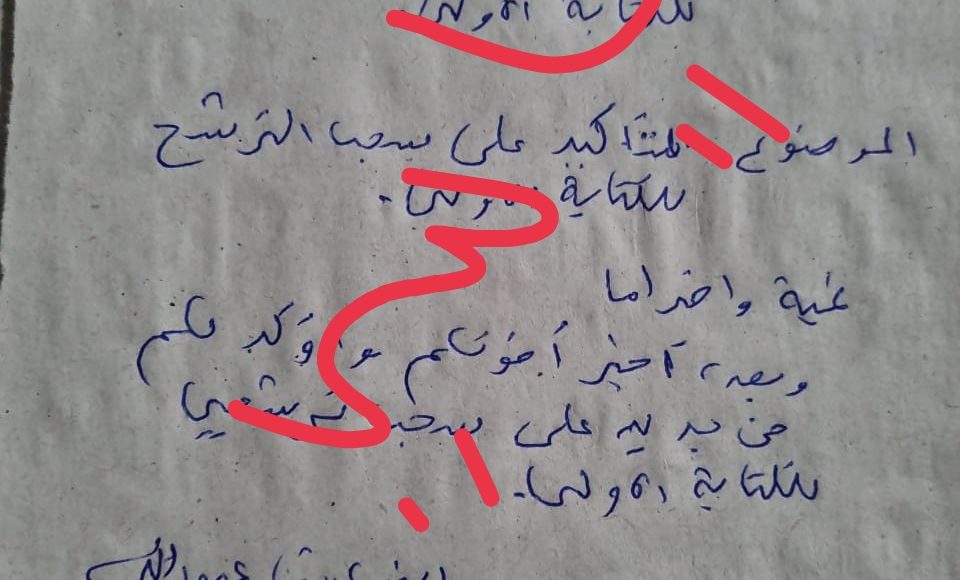 للكتابة الأولى
الموضوع للتأكيد على سحب الترشح
للكتابة الأولى.
تحية واحتراما
وبعد، أخبر أخوتكم وأؤكد لكم
من جديد على سحب ترشحي
للكتابة الأولى.